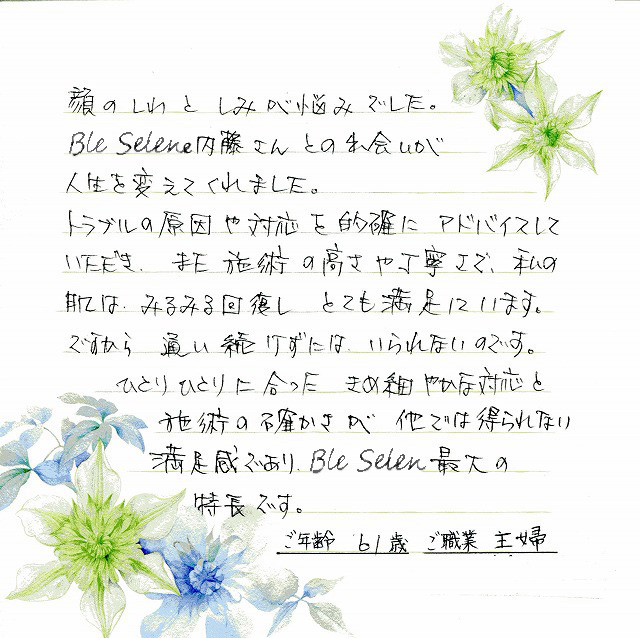 顔のしわと しみが悩みでした。
Ble Selene内藤さんとの出会いが
人生を変えてくれました。
トラブルの原因や対応を的確に アドバイスして
いただき、また 施術の高さや丁寧さで、私の
肌は、みるみる回復し とても満足しています。
ですから 通い続けずには、いられないのです。
ひとりひとりに合った きめ細やかな対応と
施術の確かさが 他では得られない
満足感であり、Ble Selen 最大の
特長です。
ご年齢 61歳 ご職業 主婦